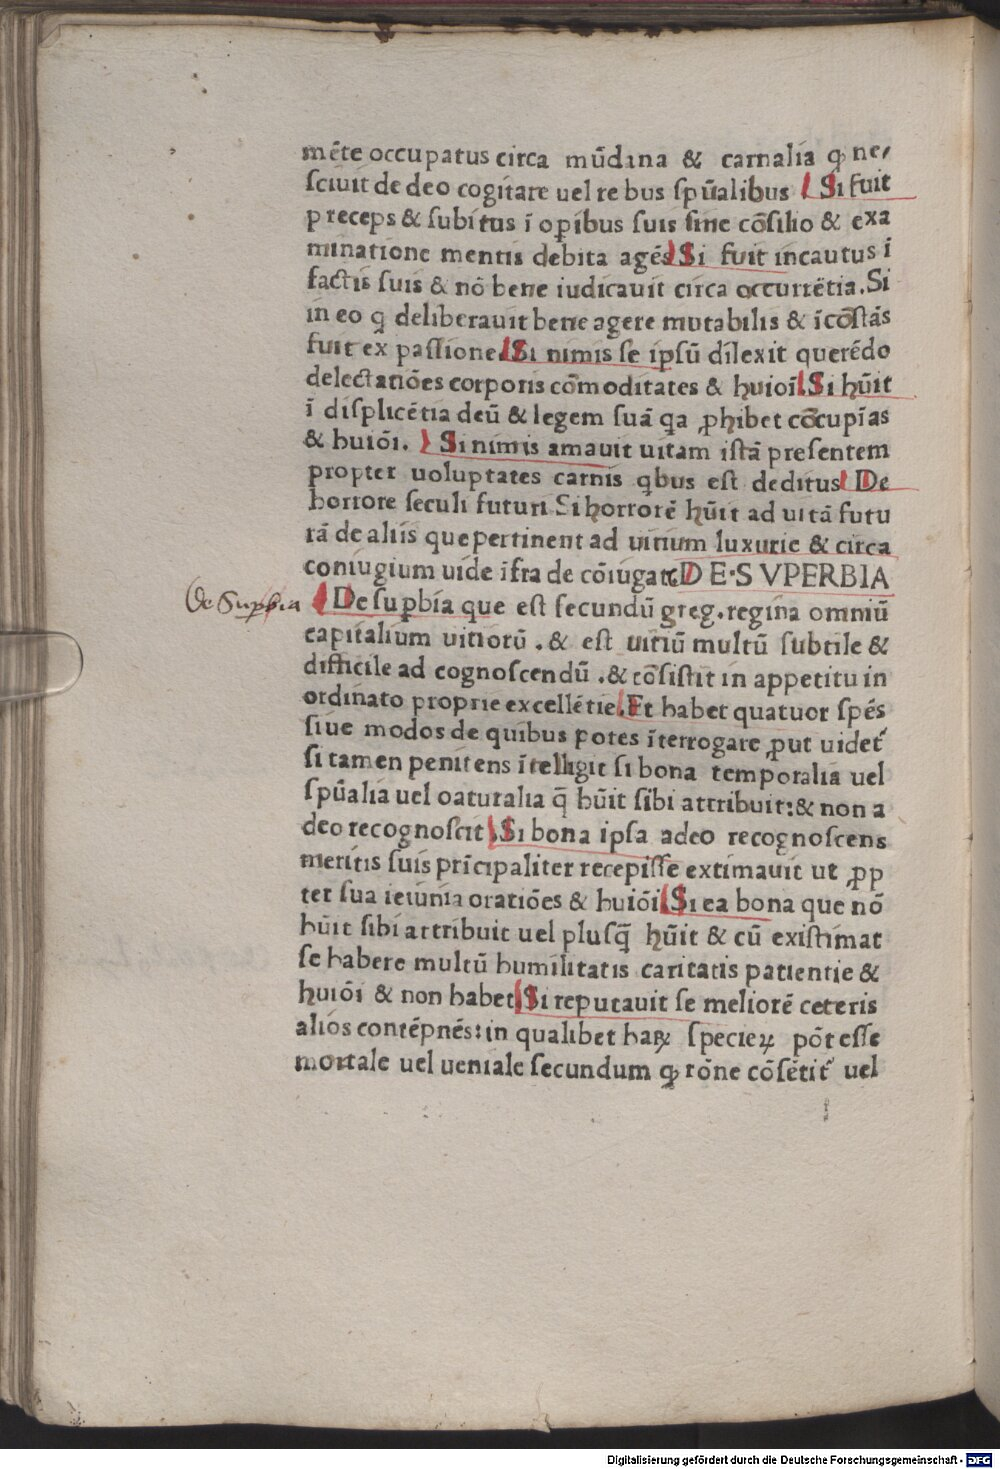 mẽte occupatus circa mũdana & carnalia ꝙ ne/
sciuit de deo cogitare uel re bus spũalibus Si fuit
preceps & subitus ĩ oꝑibus suis sine cõsilio & exa
minatione mentis debita agẽs Si fuit incautus ĩ
factis suis & nõ bene iudicauit circa occurrẽtia. Si
in eo ꝙ deliberauit bene agere mutabilis & ĩcõstãs
fuit ex passione. Si nimis se ipsũ dilexit querẽdo
delectatiões corporis cõmoditates & huiõi. Si hũit
ĩ displicẽtia deũ & legem suã qa ꝓhibet cõcupĩas
& huiõi. Si nimis amauit uitam istã presentem
propter uoluptates carnis qbus est deditus De
horrore seculi futuri Si horrorẽ hũit ad uitã futu
rã de aliis que pertinent ad uitium luxurie & circa
coniugium uide ĩfra de cõiugat. DE·SVPERBIA
De Supꝑbia
De suꝑbia que est secundũ greg. regina omniũ
capitalium uitiorũ . & est uitiũ multũ subtile &
difficile ad cognoscendũ . & cõsistit in appetitu in
ordinato proprie excellẽtie. Et habet quatuor spẽs
siue modos de quibus potes ĩterrogare ꝓut uidet᷑
si tamen penitens ĩtelligit si bona temporalia uel
spũalia uel oaturalia q̃ hũit sibi attribuit: & non a
deo recognoscit. Si bona ipsa adeo recognoscens
meritis suis prĩcipaliter recepisse extimauit ut ꝓp
ter sua ieiunia oratiões & huiõi. Si ea bona que nõ
hũit sibi attribuit uel plusq̃ hũit & cũ existimat
se habere multũ humilitatis caritatis patientie &
huiõi & non habet. Si reputauit se meliorẽ ceteris
alios contẽpnẽs: in qualibet haꝝ specieꝝ põt esse
mortale uel ueniale secundum ꝙ rõne cõsẽtit᷑ uel
Digitalisierung gefördert durch die Deutsche Forschungsgemeinschaft - DFG